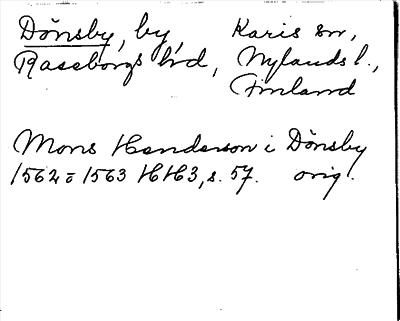 Dönsby, by, Karis sn,
Raseborgs hd, Nylands l.,
Finland
Mons Henderson i Dönsby
1562 o 1563 HH3, s. 57. orig.